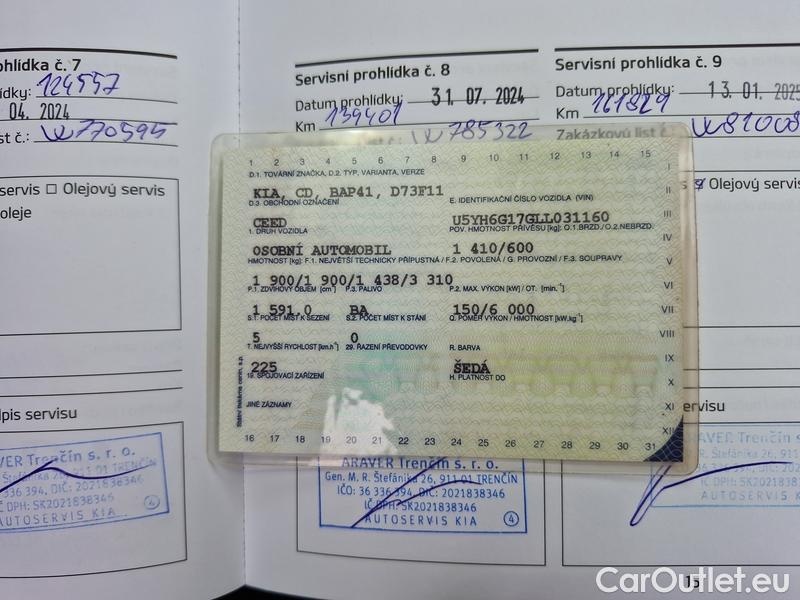 ohlídka č. 7
ídky: 124557
04. 2024
st č.: W770595
servis □ Olejový servis
oleje
dpis servisu
AVER Trenčín s. r. o.
Štefánika 26, 911 01 TRENČÍN
36 336 394, DIČ: 2021838346
IČ DPH: SK2021838346
AUTOSERVIS KIA 4
Servisní prohlídka č. 8
Datum prohlídky: 31. 07. 2024
Km 139401
W785322
Servisní prohlídka č. 9
Datum prohlídky: 13. 01. 2025
Km 161829
Zakázkový list č.
Olejový servis
1 2 3 4 5 6 7 8 9 10 11 12 13 14 15
D.1. TOVÁRNÍ ZNAČKA, D.2. TYP, VARIANTA, VERZE
KIA, CD, BAP41, D73F11
D.3. OBCHODNÍ OZNAČENÍ E. IDENTIFIKAČNÍ ČÍSLO VOZIDLA (VIN)
CEED U5YH6G17GLL031160
1. DRUH VOZIDLA POV. HMOTNOST PŘÍVĚSU [kg]: O.1.BRZD./O.2.NEBRZD.
OSOBNÍ AUTOMOBIL 1 410/600
HMOTNOST [kg]: F.1. NEJVĚTŠÍ TECHNICKY PŘÍPUSTNÁ / F.2. POVOLENÁ / G. PROVOZNÍ / F.3. SOUPRAVY
1 900/1 900/1 438/3 310
P.1. ZDVIHOVÝ OBJEM [cm³] P.3. PALIVO P.2. MAX. VÝKON [kW] / OT. [min.⁻¹]
1 591.0 BA 150/6 000
S.1. POČET MÍST K SEZENÍ S.2. POČET MÍST K STÁNÍ Q. POMĚR VÝKON / HMOTNOST [kW.kg⁻¹]
5 0
T. NEJVYŠŠÍ RYCHLOST [km.h⁻¹] 29. ŘAZENÍ PŘEVODOVKY R. BARVA
225 ŠEDÁ
19. SPOJOVACÍ ZAŘÍZENÍ H. PLATNOST DO
JINÉ ZÁZNAMY
16 17 18 19 20 21 22 23 24 25 26 27 28 29 30 31
I
II
III
IV
V
VI
VII
VIII
IX
X
XI
XII
Státní tiskárna cenin, s.p.
ARAVER Trenčín s. r. o.
Gen. M. R. Štefánika 26, 911 01 TRENČÍN
IČO: 36 336 394, DIČ: 2021838346
IČ DPH: SK2021838346
AUTOSERVIS KIA 4
ervisu
AVER Trenčín s. r. o.
AUTOSERVIS KIA
15
CarOutlet.eu